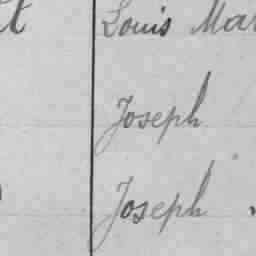 Louis Mar
Joseph
Joseph